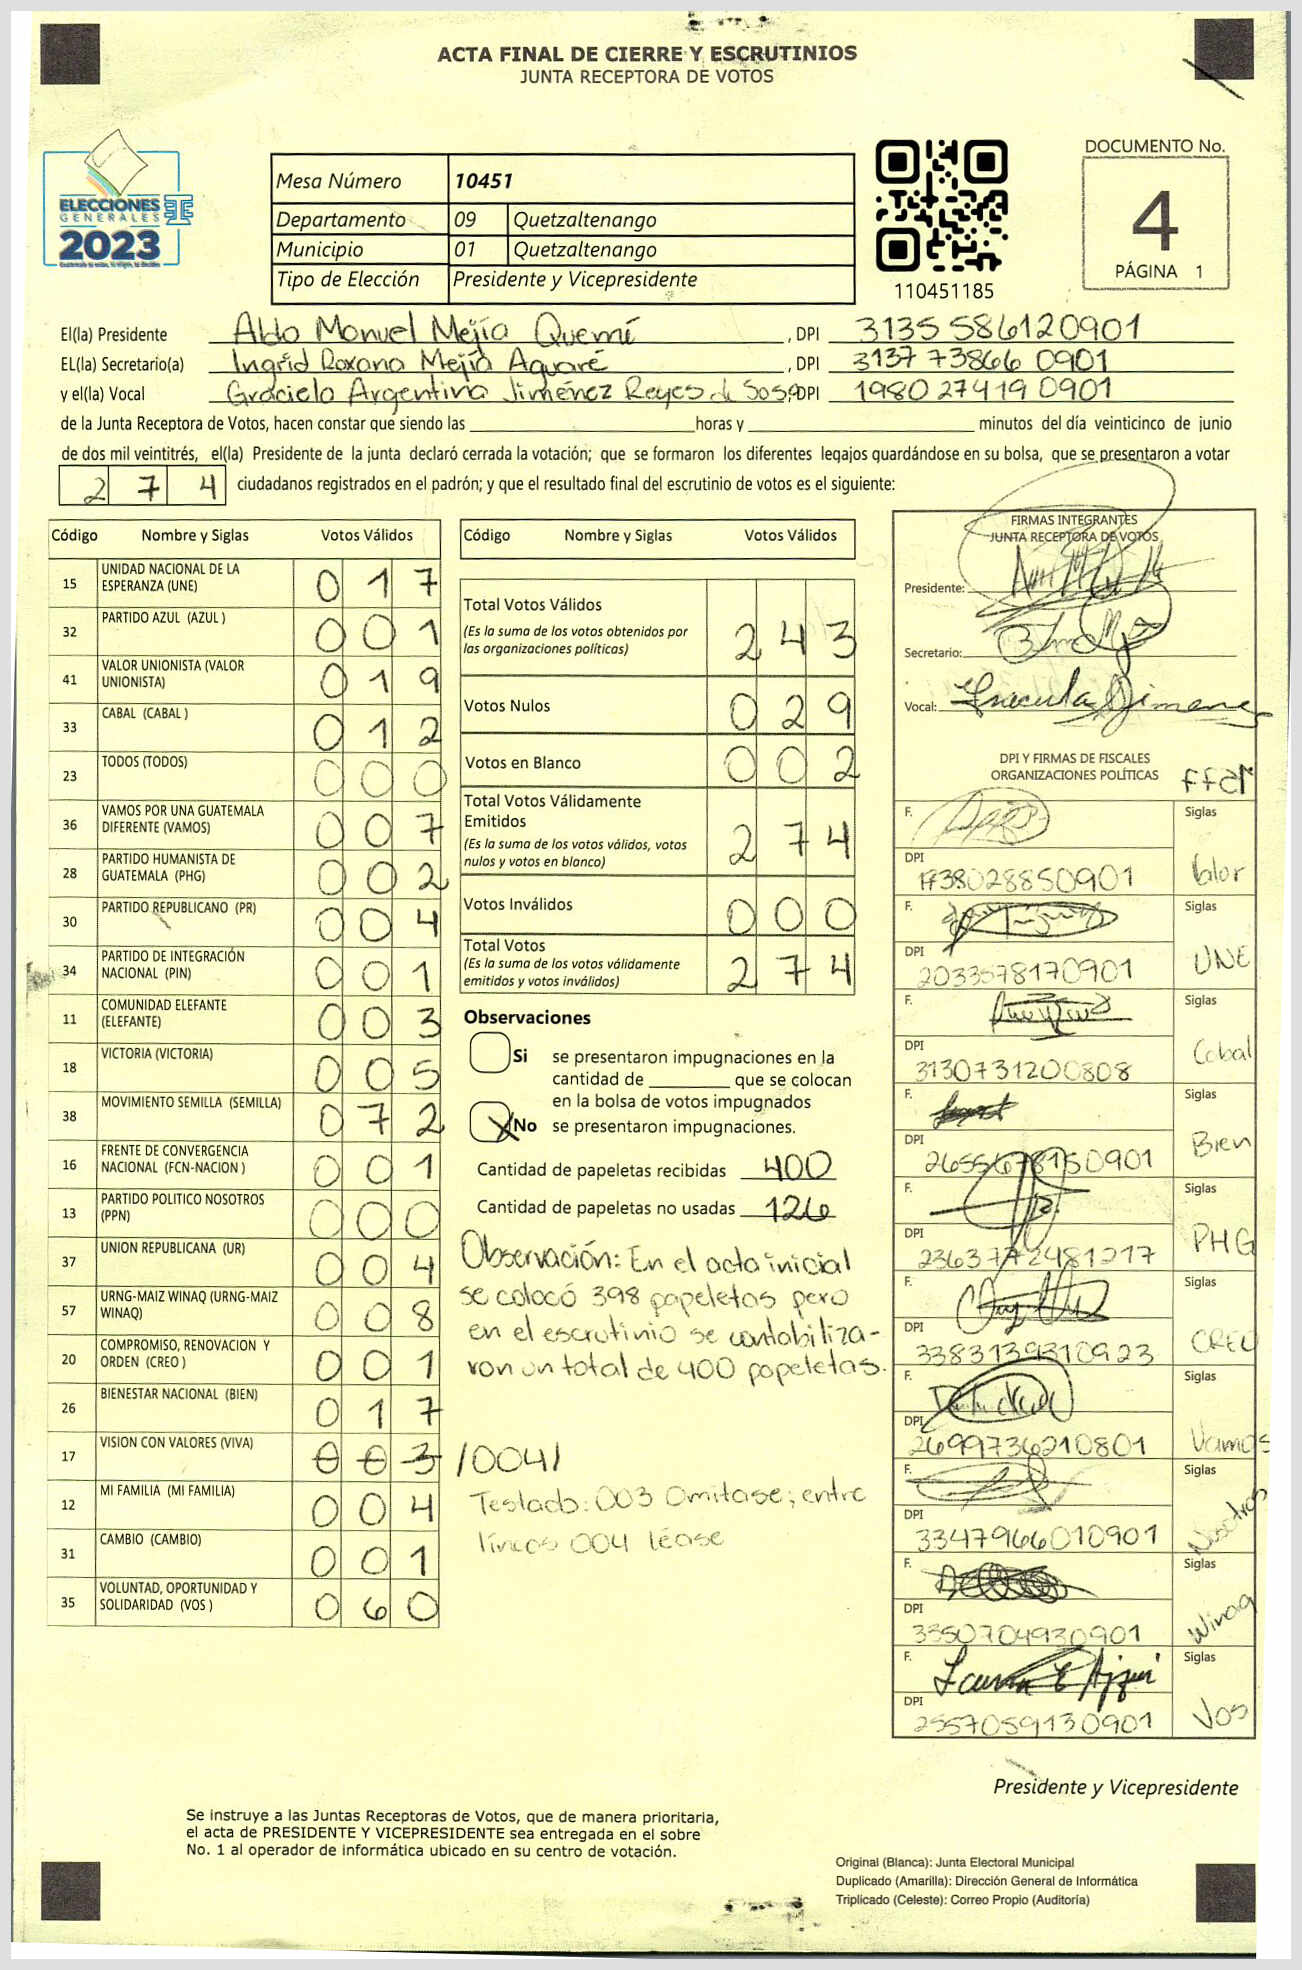 ACTA FINAL DE CIERRE Y ESCRUTINIOS
JUNTA RECEPTORA DE VOTOS
ELECCIONES
GENERALES
2023
Mesa Número 10451
Departamento 09 Quetzaltenango
Municipio 01 Quetzaltenango
Tipo de Elección Presidente y Vicepresidente
110451185
DOCUMENTO No.
4
PÁGINA 1
El(la) Presidente Aldo Manuel Mejía Quemé , DPI 3135 58612 0901
EL(la) Secretario(a) Ingrid Roxana Mejía Aguaré , DPI 3137 73866 0901
y el(la) Vocal Graciela Argentina Jiménez Reyes de Sosa, DPI 1980 27419 0901
de la Junta Receptora de Votos, hacen constar que siendo las horas y minutos del día veinticinco de junio
de dos mil veintitrés, el(la) Presidente de la junta declaró cerrada la votación; que se formaron los diferentes legajos guardándose en su bolsa, que se presentaron a votar
2 7 4 ciudadanos registrados en el padrón; y que el resultado final del escrutinio de votos es el siguiente:
Código Nombre y Siglas Votos Válidos
15 UNIDAD NACIONAL DE LA
ESPERANZA (UNE) 0 1 7
32 PARTIDO AZUL (AZUL ) 0 0 1
41 VALOR UNIONISTA (VALOR
UNIONISTA) 0 1 9
33 CABAL (CABAL ) 0 1 2
23 TODOS (TODOS) 0 0 0
36 VAMOS POR UNA GUATEMALA
DIFERENTE (VAMOS) 0 0 7
28 PARTIDO HUMANISTA DE
GUATEMALA (PHG) 0 0 2
30 PARTIDO REPUBLICANO (PR) 0 0 4
34 PARTIDO DE INTEGRACIÓN
NACIONAL (PIN) 0 0 1
11 COMUNIDAD ELEFANTE
(ELEFANTE) 0 0 3
18 VICTORIA (VICTORIA) 0 0 5
38 MOVIMIENTO SEMILLA (SEMILLA) 0 7 2
16 FRENTE DE CONVERGENCIA
NACIONAL (FCN-NACION ) 0 0 1
13 PARTIDO POLITICO NOSOTROS
(PPN) 0 0 0
37 UNION REPUBLICANA (UR) 0 0 4
57 URNG-MAIZ WINAQ (URNG-MAIZ
WINAQ) 0 0 8
20 COMPROMISO, RENOVACION Y
ORDEN (CREO ) 0 0 1
26 BIENESTAR NACIONAL (BIEN) 0 1 7
17 VISION CON VALORES (VIVA) 0 0 3 /004/
12 MI FAMILIA (MI FAMILIA) 0 0 4
31 CAMBIO (CAMBIO) 0 0 1
35 VOLUNTAD, OPORTUNIDAD Y
SOLIDARIDAD (VOS ) 0 6 0
Código Nombre y Siglas Votos Válidos
Total Votos Válidos
(Es la suma de los votos obtenidos por
las organizaciones políticas) 2 4 3
Votos Nulos 0 2 9
Votos en Blanco 0 0 2
Total Votos Válidamente
Emitidos
(Es la suma de los votos válidos, votos
nulos y votos en blanco) 2 7 4
Votos Inválidos 0 0 0
Total Votos
(Es la suma de los votos válidamente
emitidos y votos inválidos) 2 7 4
Observaciones
Si se presentaron impugnaciones en la
cantidad de que se colocan
en la bolsa de votos impugnados
X No se presentaron impugnaciones.
Cantidad de papeletas recibidas 400
Cantidad de papeletas no usadas 126
Observación: En el acta inicial
se colocó 398 papeletas pero
en el escrutinio se contabiliza-
ron un total de 400 papeletas.
Testado: 003 Omitase; entre
líneas 004 léase
FIRMAS INTEGRANTES
JUNTA RECEPTORA DE VOTOS
Presidente:
Secretario:
Vocal: Graciela Jimenez
DPI Y FIRMAS DE FISCALES
ORGANIZACIONES POLÍTICAS
F. Siglas
DPI 1738028850901 Valor
F. Siglas
DPI 2033578170901 UNE
F. Siglas
DPI 3130731200808 Cabal
F. Siglas
DPI 2655678150901 Bien
F. Siglas
DPI 2363772481217 PHG
F. Siglas
DPI 3383139310923 CREO
F. Siglas
DPI 2699736210801 Vamos
F. Siglas
DPI 3347966010901 Nosotros
F. Siglas
DPI 3350704930901 Winaq
F. Siglas
DPI 2557059130901 Vos
Presidente y Vicepresidente
Se instruye a las Juntas Receptoras de Votos, que de manera prioritaria,
el acta de PRESIDENTE Y VICEPRESIDENTE sea entregada en el sobre
No. 1 al operador de informática ubicado en su centro de votación.
Original (Blanca): Junta Electoral Municipal
Duplicado (Amarilla): Dirección General de Informática
Triplicado (Celeste): Correo Propio (Auditoría)